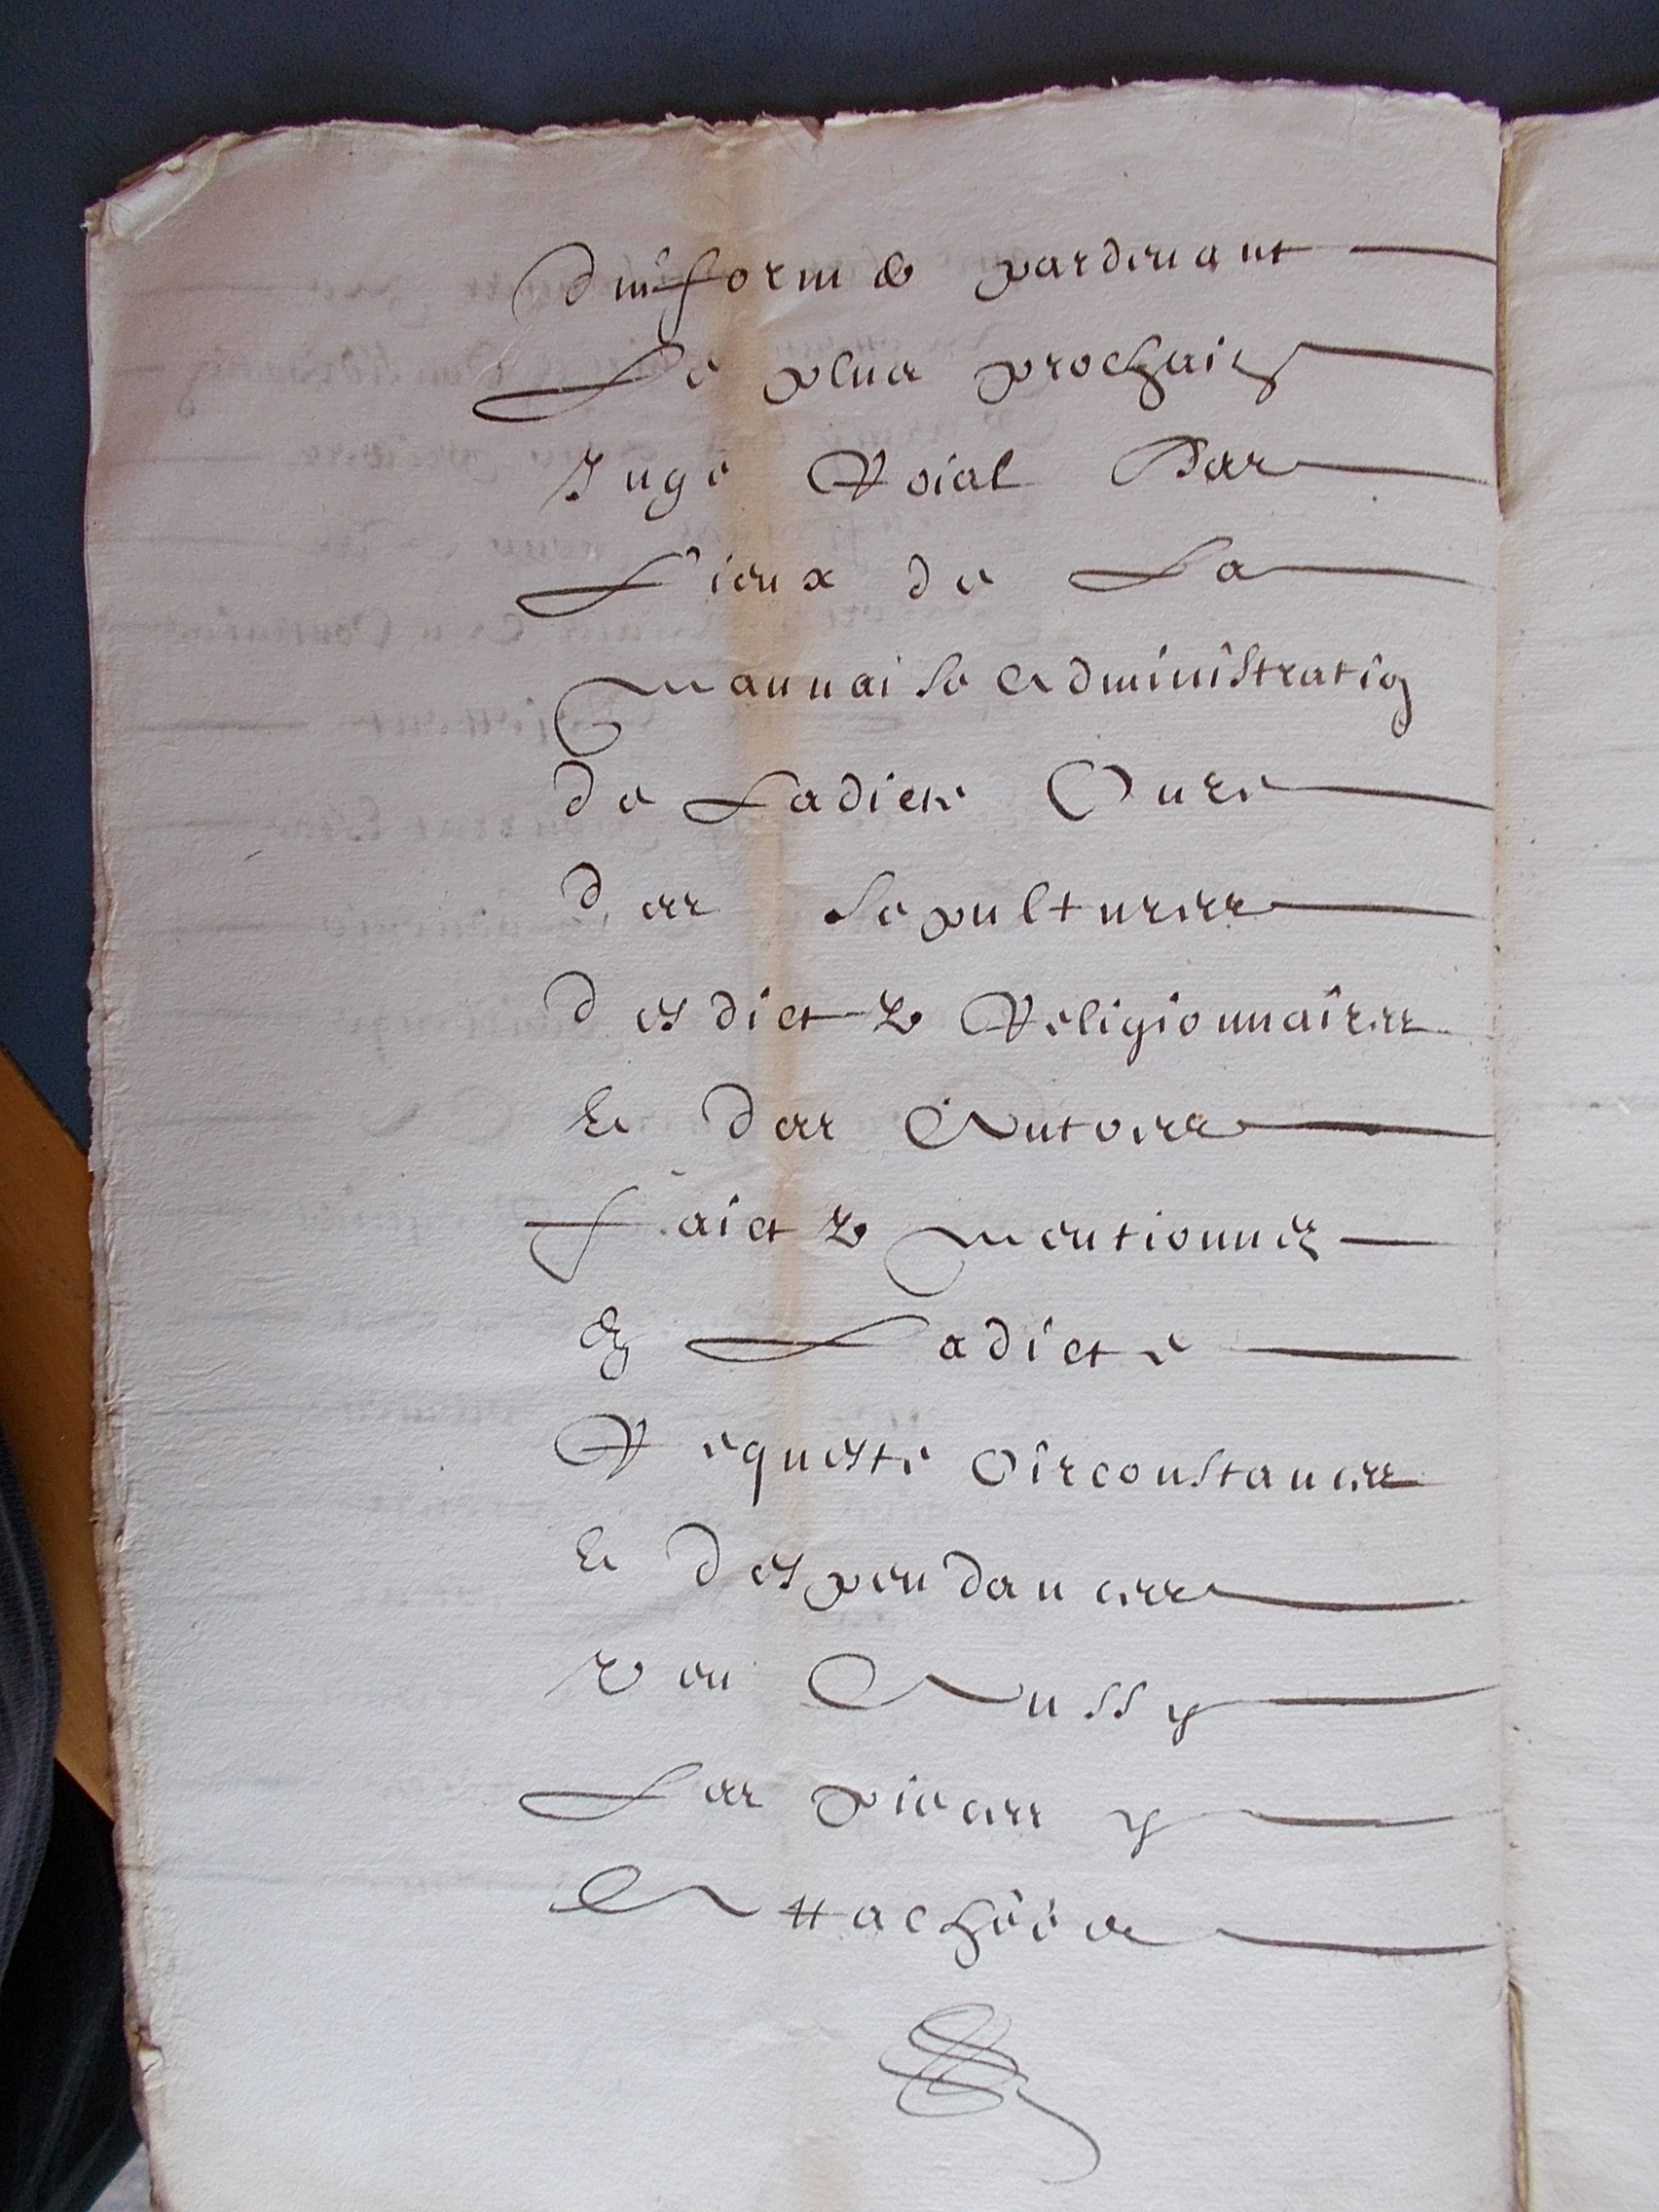 d'informer pardevant
Le plus prochain
Juge Roial des
Lieux de La
mauvaise administration
de Ladicte Cure
des sepultures
desdictz Religionnaires
Et des autres
faictz mentionnez
en Ladicte
Requeste circonstances
Et despendances
veu aussy
Les pieces y
attachées